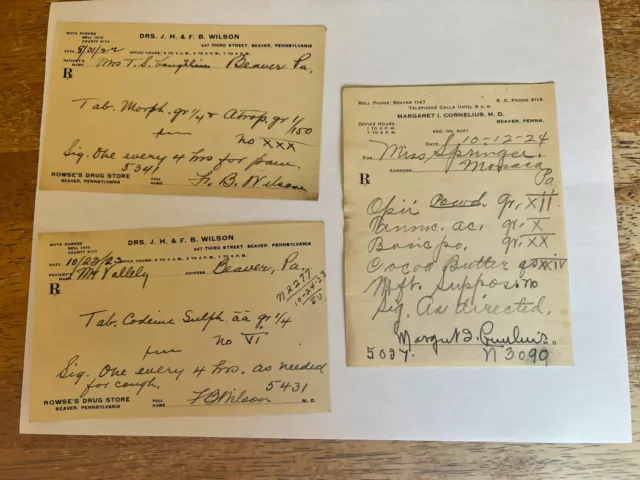 BOTH PHONES
BELL 1670
COUNTY 6172
DRS. J. H. & F. B. WILSON
647 THIRD STREET, BEAVER, PENNSYLVANIA
OFFICE HOURS: 8 TO 9 A.M., 2 TO 4 P.M., 7 TO 8 P.M.
DATE 8/21/22
PATIENT'S NAME Mrs T. S. Laughlin Beaver Pa.
℞
Tab. Morph. gr 1/4 & Atrop. gr 1/150
no XXX
Sig. One every 4 hrs for pain.
5341
F. B. Wilson
ROWSE'S DRUG STORE
BEAVER, PENNSYLVANIA
FULL NAME
BOTH PHONES
DRS. J. H. & F. B. WILSON
647 THIRD STREET, BEAVER, PENNSYLVANIA
DATE 10/23/23
PATIENT'S Mr Vallely ADDRESS Beaver, Pa.
℞
N2277
10-24-23
Tab. Codeine Sulph. āā gr 1/4
no VI
Sig. One every 4 hrs. as needed
for cough. 5431
FB Wilson M.D.
ROWSE'S DRUG STORE
BEAVER, PENNSYLVANIA
FULL NAME
BELL PHONE, BEAVER 1147 B. C. PHONE 6113
TELEPHONE CALLS UNTIL 9 A.M.
MARGARET I. CORNELIUS, M. D.
OFFICE HOURS BEAVER, PENNA.
1 TO 3 P. M.
7 TO 8 P. M.
REG. NO. 5037
DATE 10-12-24
FOR Miss Springer.
ADDRESS Monaca
Pa
℞
Opii Powd. gr. XII
ac. gr. X
gr. XX
Cocoa Butter
Mft. Suppos. no
Sig. As directed.
Margaret I. Cornelius D
5037. N3090